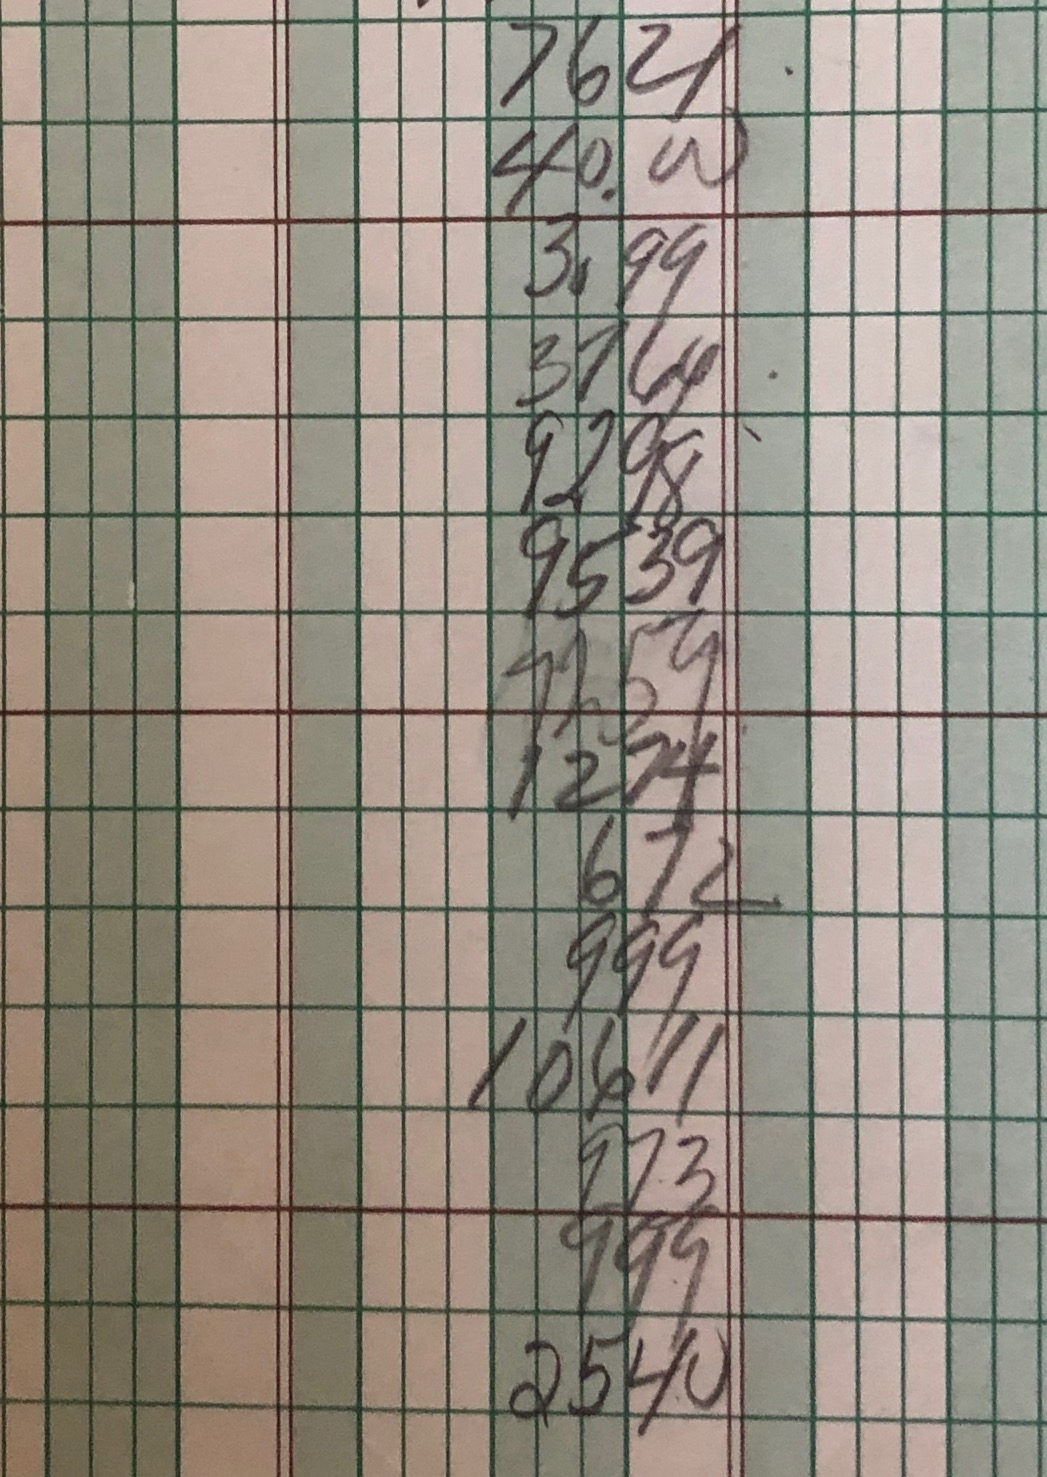 7621
40.00
3.99
3764
9298
9539
7659
1274
672
999
10611
973
999
2540